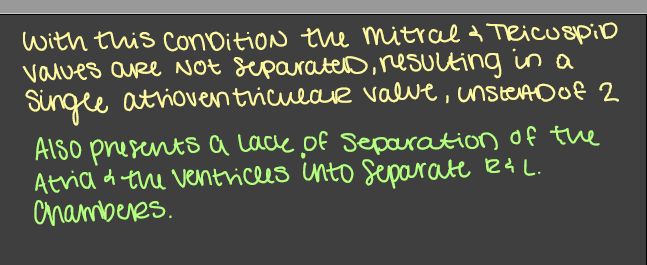 With this condition the mitral & tricuspid
valves are not separated, resulting in a
single atrioventricular valve, instead of 2
Also presents a lack of separation of the
atria & the ventricles into separate R & L.
chambers.